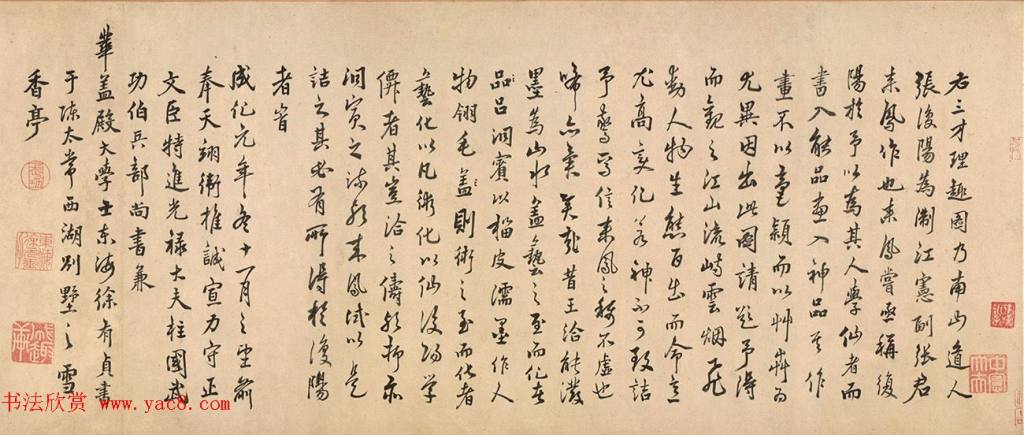 右三才理趣圖乃南山道人
張復陽為浙江憲副張君
来鳳作也来鳳嘗亟稱復
陽於予以為其人學仙者而
書入能品畫入神品其作
畫不以毫穎而以艸為
尤異因出此圖請題予得
而觀之江山流峙雲烟飛
動人物生態百出而命意
尤高變化若神不可致詰
予驚信来鳳之稱不虚也
唏亦奚異哉昔王洽能潑
墨為山水蓋藝之至而化在
品呂洞賓以榴皮濡墨作人
物翎毛蓋則術之至而化者
藝化以凡術化以仙復陽学
僊者其豈洽之儔歟抑亦
洞賓之流歟来鳳試以是
詰之其必有所得於復陽
者
成化元年冬十一月之望前
奉天翊衛推誠宣力守正
文臣特進光禄大夫柱國武
功伯兵部尚書兼
華盖殿大學士東海徐有貞書
于陳太常西湖別墅之雪
香亭
书法欣赏 www.yac8.com